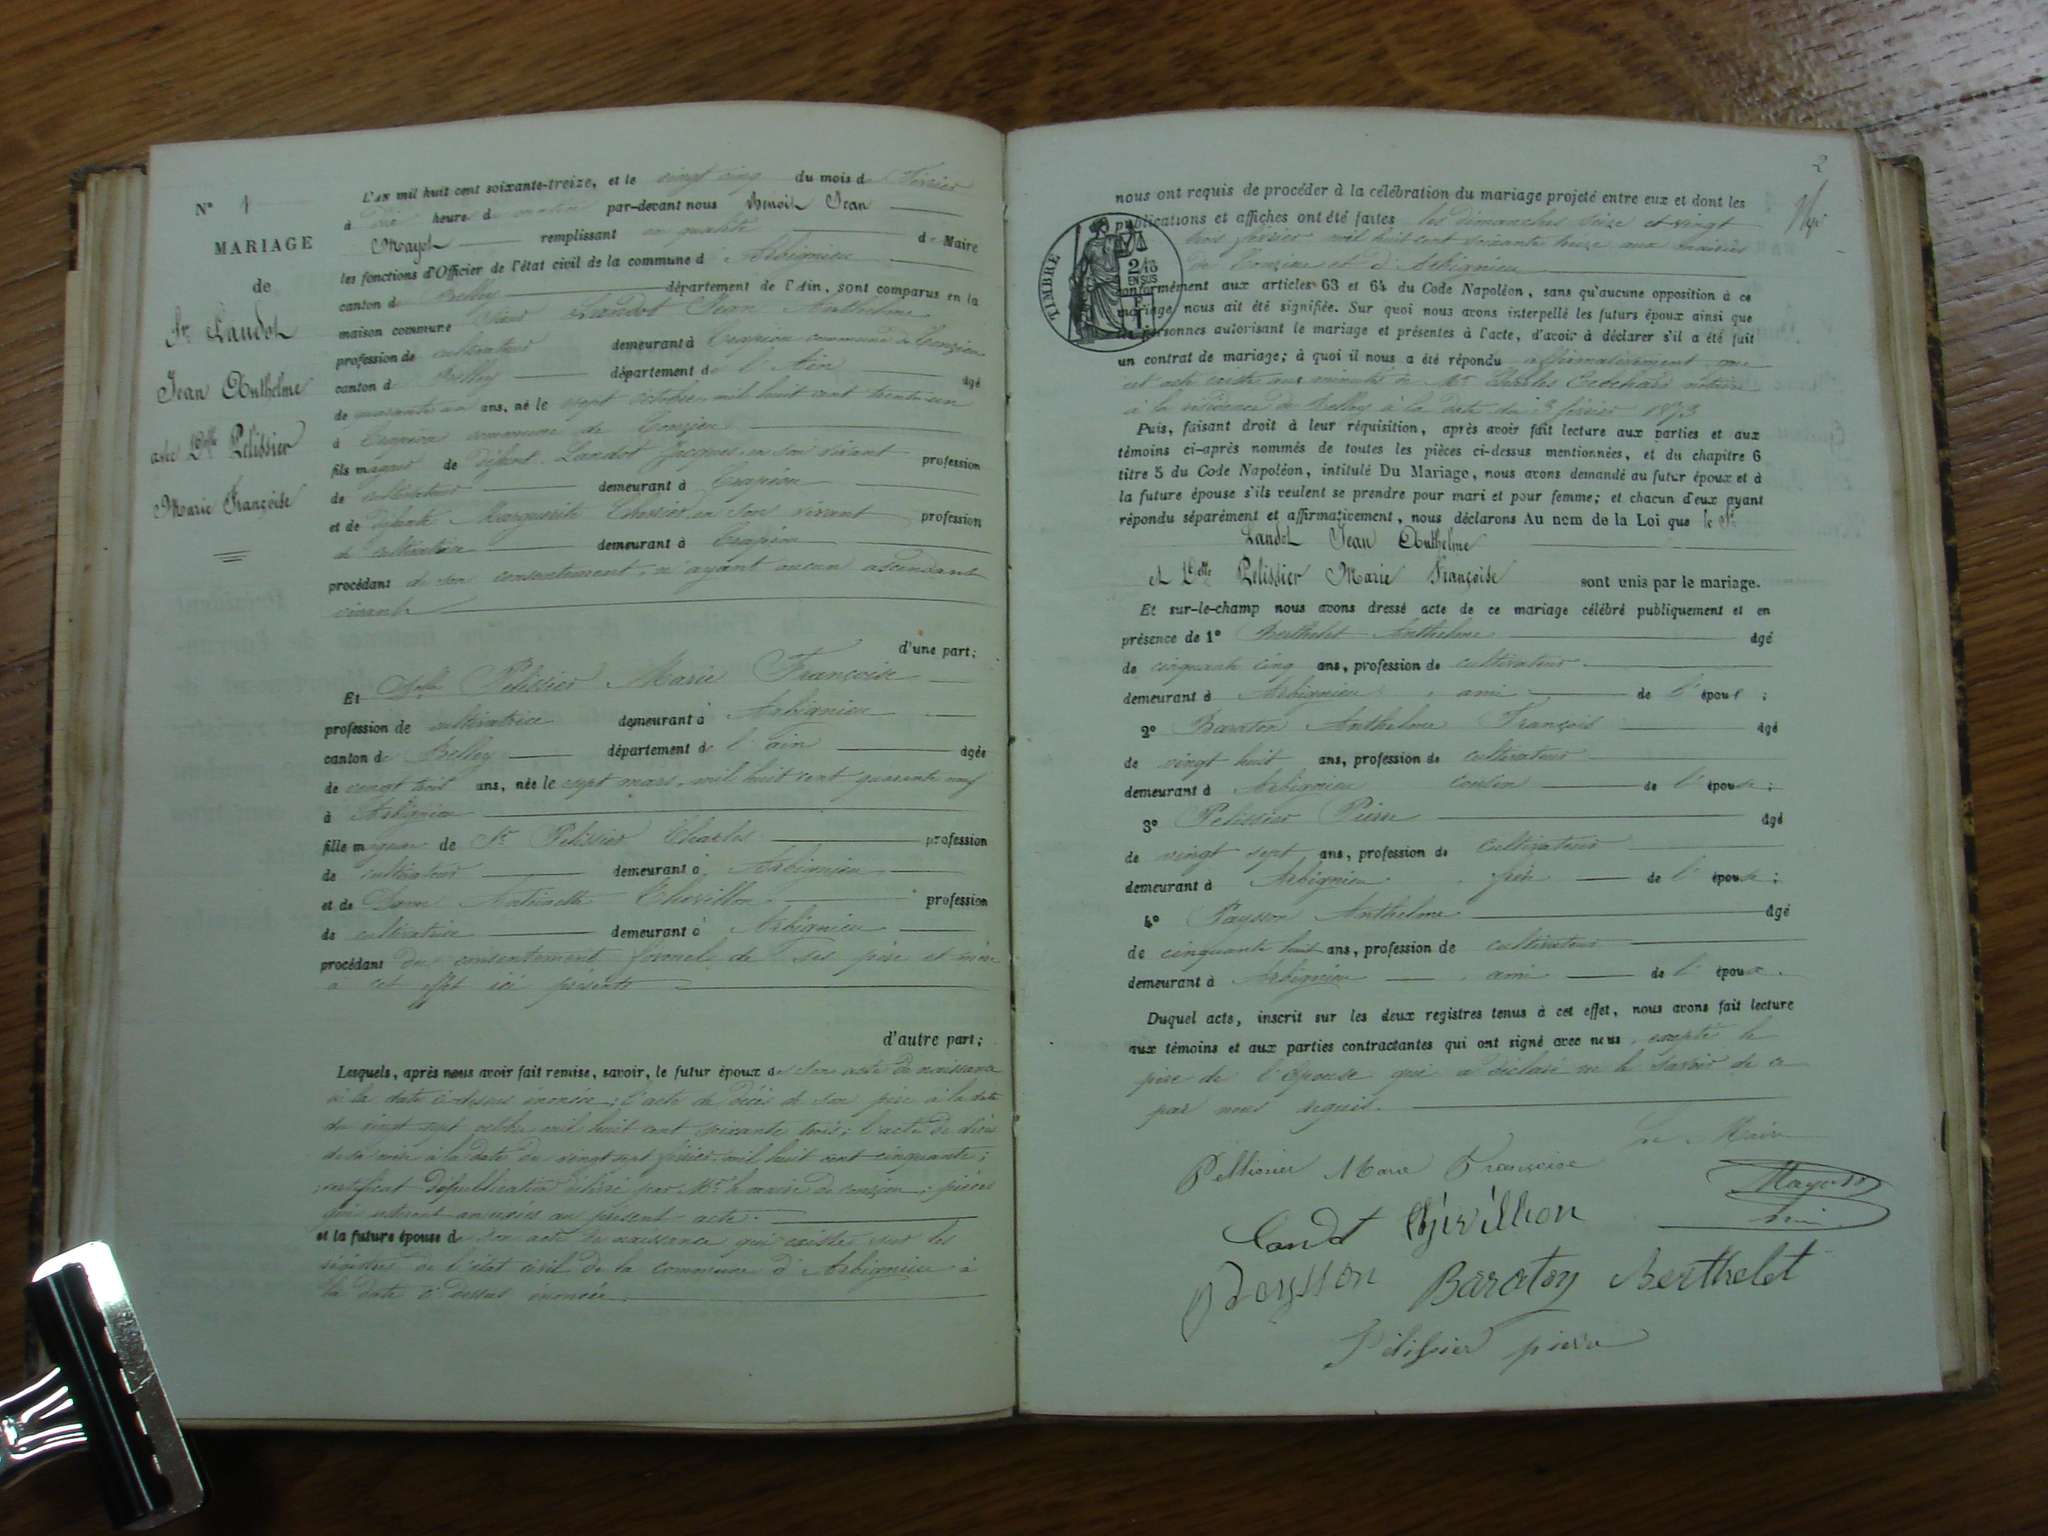 N° 1
MARIAGE
de
Sr Landot
Jean Anthelme
avec Delle Pélissier
Marie Françoise
L'AN mil huit cent soixante-treize, et le vingt cinq du mois de Février
à dix heure du matin par-devant nous Benoit Jean
Mayot remplissant en qualité de Maire
les fonctions d'Officier de l'état civil de la commune d'Arbignieu
canton de Belley département de l'Ain, sont comparus en la
maison commune Sieur Landot Jean Anthelme
profession de cultivateur demeurant à Crapéou commune de Conzieu
canton de Belley département de l'Ain âgé
de quarante un ans, né le sept octobre mil huit cent trente un
à Crapéou commune de Conzieu
fils majeur de défunt Landot Jacques en son vivant profession
de cultivateur demeurant à Crapéou
et de défunte Marguerite en son vivant profession
de cultivatrice demeurant à Crapéou
procédant de son consentement, n'ayant aucun ascendant
vivant
d'une part;
Et Delle Pelissier Marie Françoise
profession de cultivatrice demeurant à Arbignieu
canton de Belley département de l'ain âgée
de vingt trois ans, née le sept mars mil huit cent quarante neuf
à Arbignieu
fille majeure de Sr Pelissier Charles profession
de cultivateur demeurant à Arbignieu
et de Dame Antoinette Chevillon profession
de cultivatrice demeurant à Arbignieu
procédant du consentement formel de ses père et mère
à cet effet ici présents
d'autre part;
Lesquels, après nous avoir fait remise, savoir, le futur époux de son acte de naissance
à la date ci-dessus énoncée; l'acte de décès de son père à la date
du vingt sept octobre mil huit cent soixante trois; l'acte de décès
de sa mère à la date du vingt sept février mil huit cent cinquante;
certificat de publication délivré par Mr le maire de Conzieu; pièces
qui resteront annexées au présent acte.
et la future épouse de son acte de naissance qui existe sur les
régistres de l'état civil de la commune d'Arbignieu à
la date ci dessus énoncée
2
nous ont requis de procéder à la célébration du mariage projeté entre eux et dont les
publications et affiches ont été faites les dimanches seize et vingt
trois février mil huit cent soixante treize aux mairies
de Conzieu et d'Arbignieu
TIMBRE
2/10
EN SUS
conformément aux articles 63 et 64 du Code Napoléon, sans qu'aucune opposition à ce
mariage nous ait été signifiée. Sur quoi nous avons interpellé les futurs époux ainsi que
les personnes autorisant le mariage et présentes à l'acte, d'avoir à déclarer s'il a été fait
un contrat de mariage; à quoi il nous a été répondu affirmativement que
cet acte existe aux minutes de Mr Charles notaire
à la résidence de Belley à la date du 3 février 1873
Puis, faisant droit à leur réquisition, après avoir fait lecture aux parties et aux
témoins ci-après nommés de toutes les pièces ci-dessus mentionnées, et du chapitre 6
titre 5 du Code Napoléon, intitulé Du Mariage, nous avons demandé au futur époux et à
la future épouse s'ils veulent se prendre pour mari et pour femme; et chacun d'eux ayant
répondu séparément et affirmativement, nous déclarons Au nom de la Loi que le Sr
Landot Jean Anthelme
et Delle Pélissier Marie Françoise sont unis par le mariage.
Et sur-le-champ nous avons dressé acte de ce mariage célébré publiquement et en
présence de 1° Berthelet Anthelme âgé
de cinquante cinq ans, profession de cultivateur
demeurant à Arbignieu, ami de l'époux;
2° Baraton Anthelme François âgé
de vingt huit ans, profession de cultivateur
demeurant à Arbignieu cousin de l'épouse;
3° Pelissier Pierre âgé
de vingt sept ans, profession de cultivateur
demeurant à Arbignieu, frère de l'épouse;
4° Paysson Anthelme âgé
de cinquante huit ans, profession de cultivateur
demeurant à Arbignieu, ami de l'épouse.
Duquel acte, inscrit sur les deux registres tenus à cet effet, nous avons fait lecture
aux témoins et aux parties contractantes qui ont signé avec nous, excepté le
père de l'épouse qui a déclaré ne le savoir de ce
par nous requis.
Le Maire
Pellissier Marie Françoise
Mayot
Landot Chevillon
Paysson Baraton Berthelet
Pélissier pierre